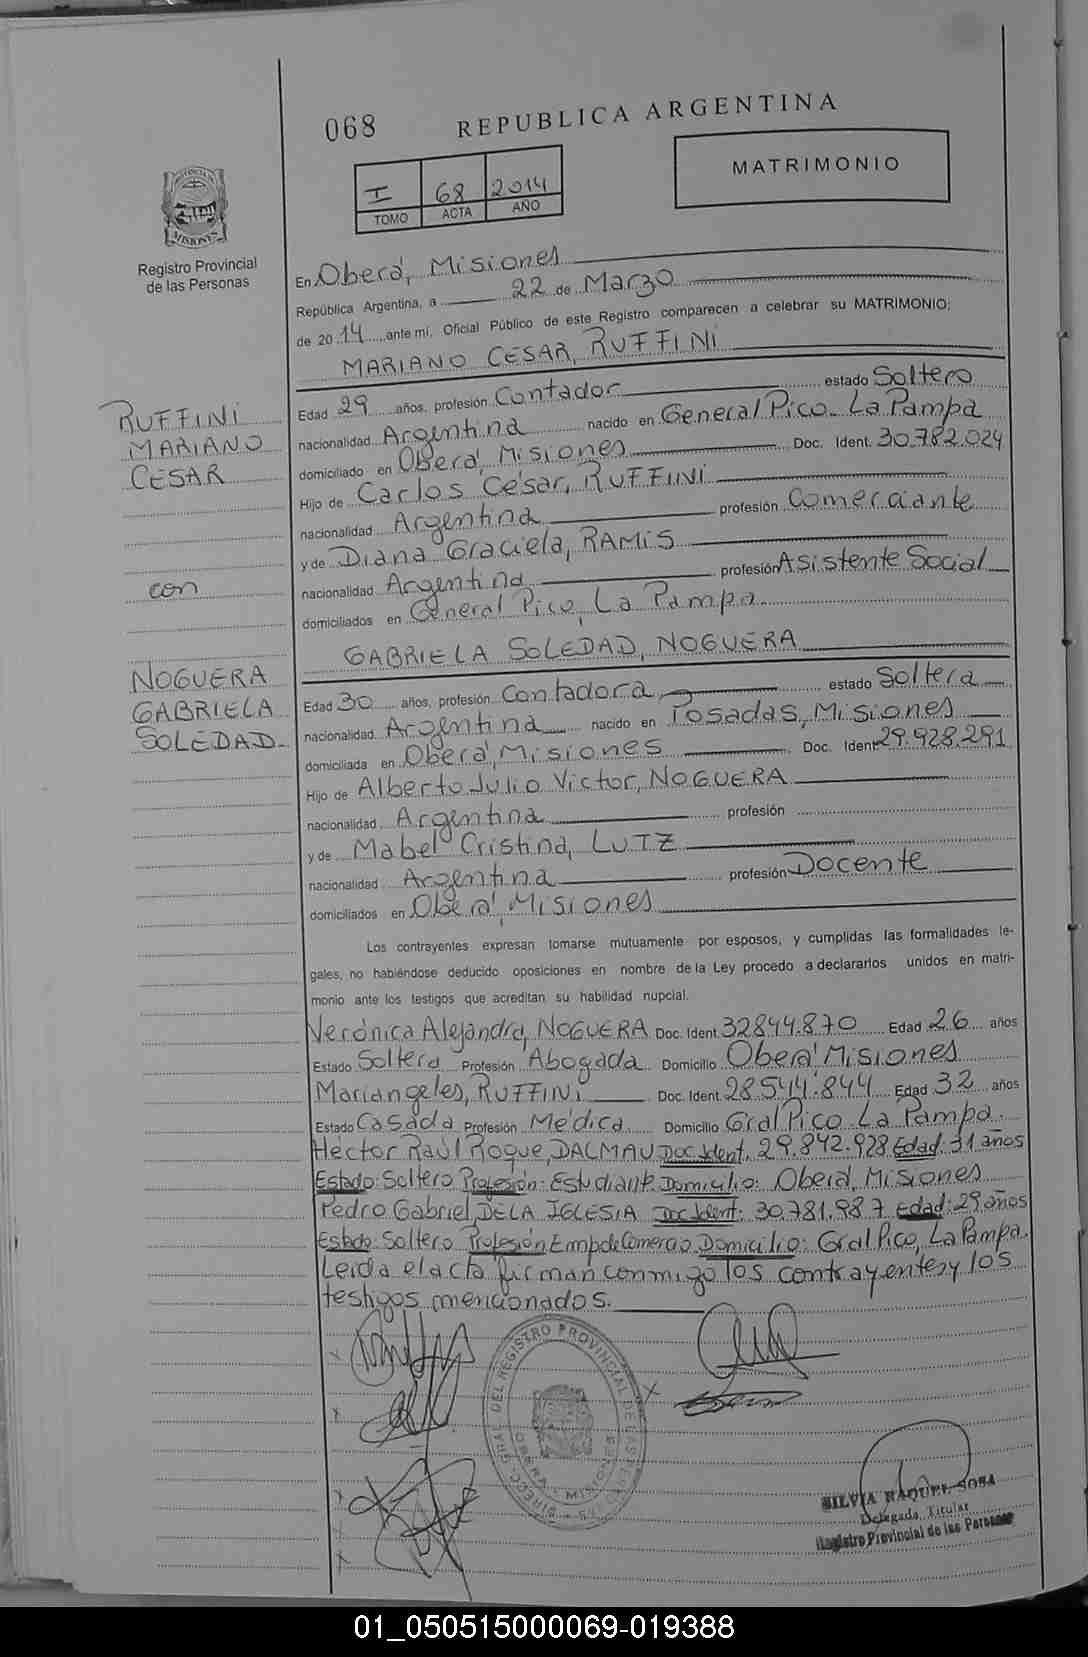 068
REPUBLICA ARGENTINA
MATRIMONIO
I 68 2014
TOMO ACTA AÑO
PROVINCIA DE
MISIONES
Registro Provincial
de las Personas
En Oberá, Misiones
República Argentina, a 22 de Marzo
de 2014 ante mí, Oficial Público de este Registro comparecen a celebrar su MATRIMONIO:
MARIANO CESAR, RUFFINI
RUFFINI
MARIANO
CESAR
con
NOGUERA
GABRIELA
SOLEDAD
Edad 29 años, profesión Contador estado Soltero
nacionalidad Argentina nacido en General Pico. La Pampa
domiciliado en Oberá, Misiones Doc. Ident. 30.782.024
Hijo de Carlos César, RUFFINI
nacionalidad Argentina profesión Comerciante
y de Diana Graciela, RAMIS
nacionalidad Argentina profesión Asistente Social
domiciliados en General Pico, La Pampa
GABRIELA SOLEDAD, NOGUERA
Edad 30 años, profesión Contadora estado Soltera
nacionalidad Argentina nacido en Posadas, Misiones
domiciliada en Oberá, Misiones Doc. Ident 29.928.291
Hijo de Alberto Julio Victor, NOGUERA
nacionalidad Argentina profesión
y de Mabel Cristina, LUTZ
nacionalidad Argentina profesión Docente
domiciliados en Oberá, Misiones
Los contrayentes expresan tomarse mutuamente por esposos, y cumplidas las formalidades le-
gales, no habiéndose deducido oposiciones en nombre de la Ley procedo a declararlos unidos en matri-
monio ante los testigos que acreditan su habilidad nupcial.
Verónica Alejandra, NOGUERA Doc. Ident. 32844.870 Edad 26 años
Estado Soltera Profesión Abogada Domicilio Oberá Misiones
Mariangeles, RUFFINI Doc. Ident. 28.544.844 Edad 32 años
Estado Casada Profesión Médica Domicilio Gral Pico La Pampa.
Héctor Raúl Roque, DALMAU Doc Ident. 29.842.928 Edad: 31 años
Estado: Soltero Profesión: Estudiante Domicilio: Oberá, Misiones
Pedro Gabriel, DE LA IGLESIA Doc Ident: 30.781.987 Edad: 29 años
Estado: Soltero Profesión Emp de Comercio Domicilio: Gral Pico, La Pampa.
Leida el acta firman conmigo los contrayentes y los
testigos mencionados.
DIRECC. GRAL. DEL REGISTRO PROVINCIAL DE LAS PERSONAS
OBERA - MISIONES
SILVIA RAQUEL SOSA
Delegada Titular
Registro Provincial de las Personas
01_050515000069-019388